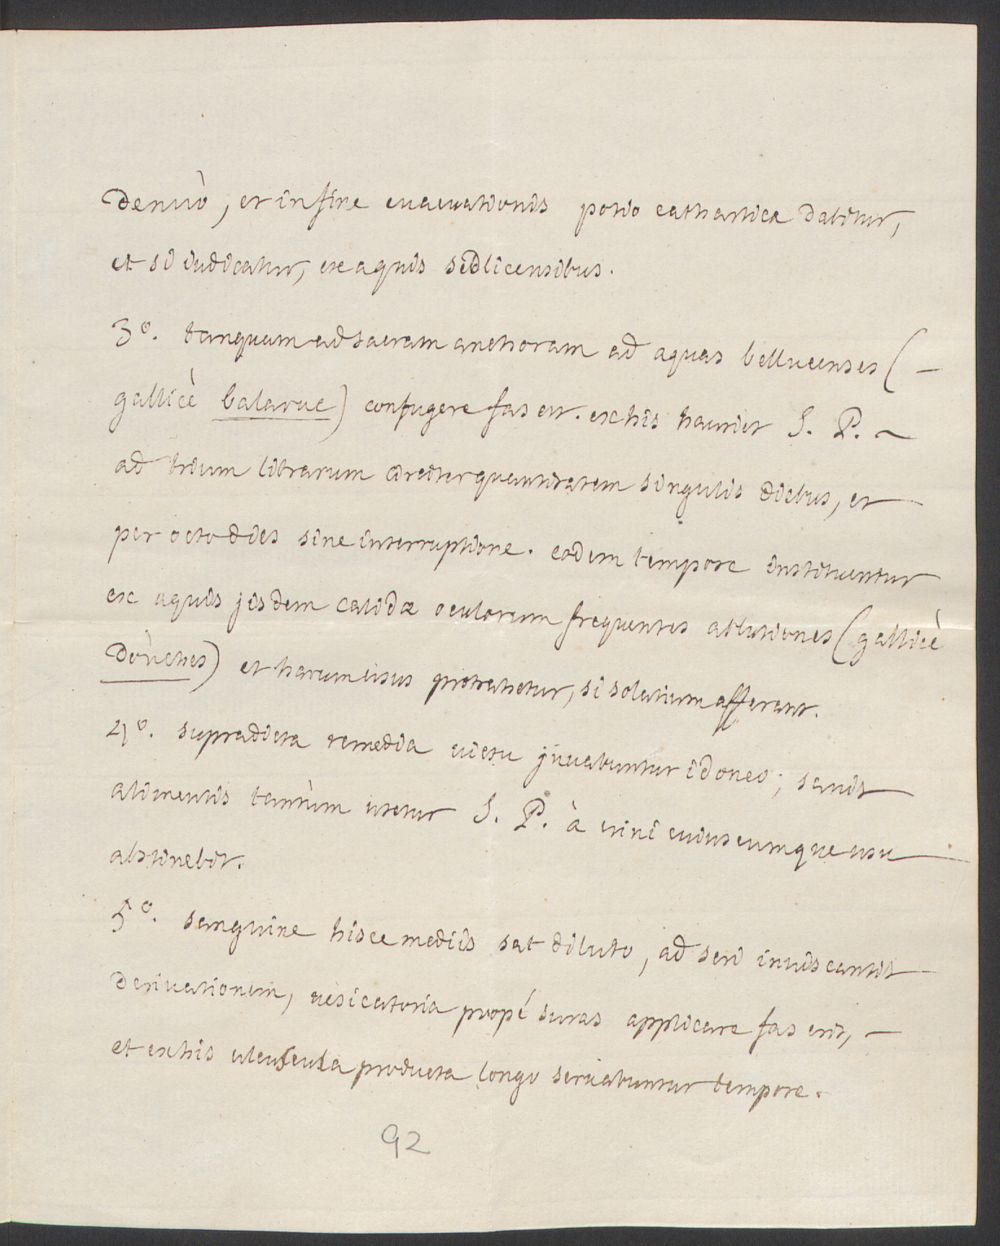 denuò, et in fine evacuationis potio cathartica dabitur,
et si iudicatur, ex aquis sedlicensibus.
3°. tanquam ad sacram anchoram ad aquas bellucenses (–
gallicè balaruc) confugere fas est. ex his hauriet S. P. –
ad trium librarum circiter quantitatem singulis diebus, et
per octo dies sine interruptione. eodem tempore instituentur
ex aquis jisdem calidæ oculorum frequentes ablutiones (gallicè
Doùches) et harum usus protrahetur, si solatium afferant.
4°. supradicta remedia victu juvabuntur idoneo; sanis
alimentis tantùm utetur S. P. à vini cuiuscumque usu
abstinebit.
5°. sanguine hisce mediis sat diluto, ad seri inviscantis
derivationem, vesicatoria propé suras applicare fas erit, –
et ex his ulcuscula producta longo servabuntur tempore.
92